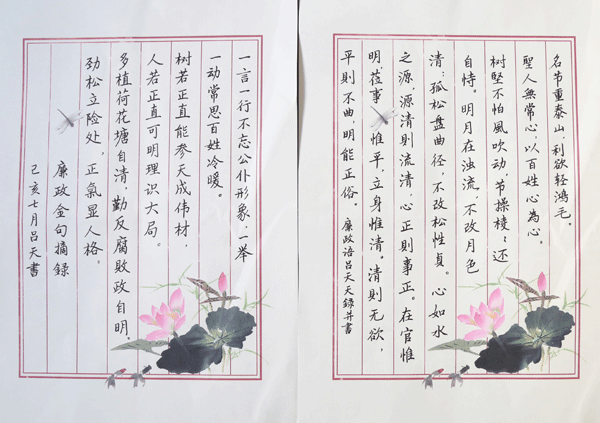 名节重泰山，利欲轻鸿毛。
聖人無常心，以百姓心為心。
树堅不怕風吹动，节操棱：还
自恃。明月在浊流，不改月色
清：孤松盘曲径，不改松性貞。心如水
之源，源清则流清，心正则事正。在官惟
明，莅事惟平，立身惟清。清则无欲，
平则不曲，明能正俗。廉政语吕天天錄并書
一言一行不忘公仆形象，一举
一动常思百姓冷暖。
树若正直能参天成伟材，
人若正直可明理识大局。
多植荷花塘自清，勤反腐敗政自明。
劲松立险处，正氣显人格。
廉政金句摘録
己亥七月吕天書